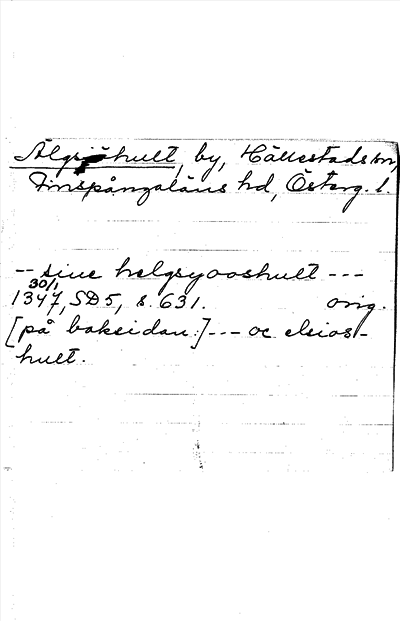 Älgsjöhult, by, Hällestads sn,
Finspångaläns hd, Österg. l.
-- sine helgsyooshult ---
30/1
1347, SD 5, s. 631. orig.
[på baksidan:] --- oc elsios-
hult.